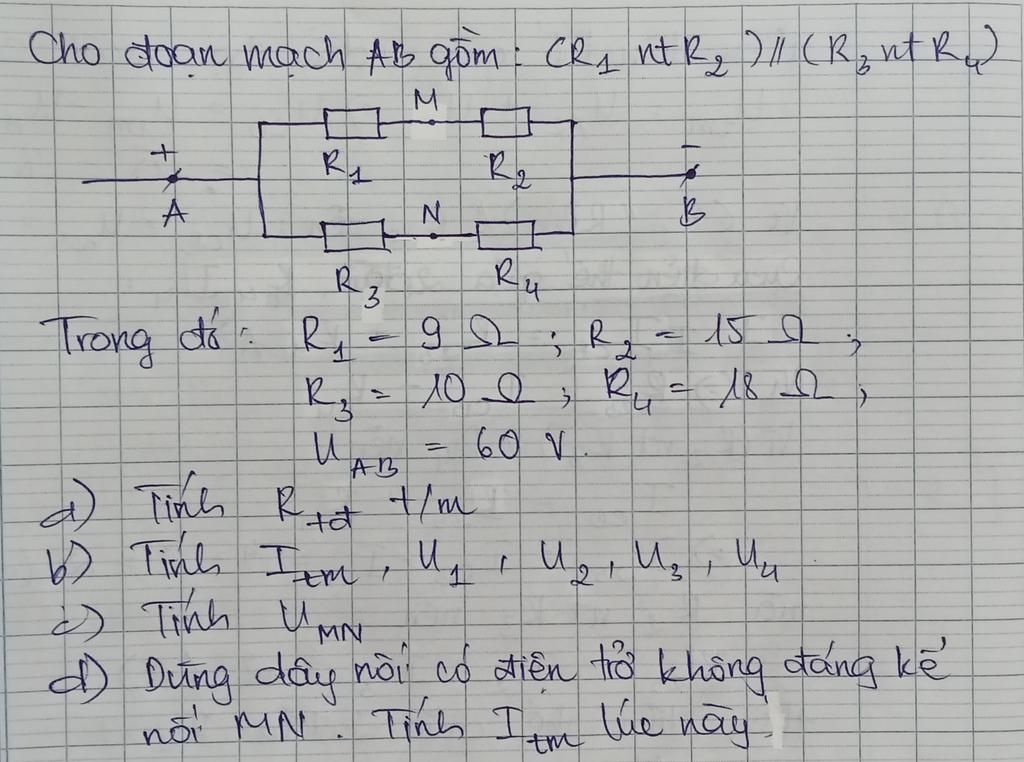 Cho đoạn mạch AB gồm: (R₁ nt R₂) // (R₃ nt R₄)
M
+ R₁ R₂ -
A N B
R₃ R₄
Trong đó: R₁ = 9 Ω ; R₂ = 15 Ω ;
R₃ = 10 Ω ; R₄ = 18 Ω ;
U_AB = 60 V.
a) Tính R_tđ t/m
b) Tính I_tm, U₁, U₂, U₃, U₄
c) Tính U_MN
d) Dùng dây nối có điện trở không đáng kể
nối MN. Tính I_tm lúc này